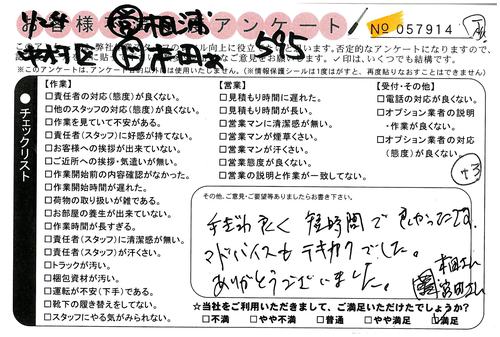 お客様 アンケート
No 057914
中村区
595
チェックリスト
【作業】
□責任者の対応(態度)が良くない。
□他のスタッフの対応(態度)が良くない。
□作業を見ていて不安がある。
□責任者(スタッフ)に好感が持てない。
□お客様への挨拶が出来ていない。
□ご近所への挨拶・気遣いが無い。
□作業開始前の内容確認がなかった。
□作業開始時間が遅れた。
□荷物の取り扱いが雑である。
□お部屋の養生が出来ていない。
□作業時間が長すぎる。
□責任者(スタッフ)に清潔感が無い。
□責任者(スタッフ)が汗くさい。
□トラックが汚い。
□梱包資材が汚い。
□運転が不安(下手)である。
□靴下の履き替えをしてない。
□スタッフにやる気がみられない。
【営業】
□見積もり時間に遅れた。
□見積もり時間が長い。
□営業マンに清潔感が無い。
□営業マンが煙草くさい。
□営業マンが汗くさい。
□営業態度が良くない。
□営業の説明と作業が一致してない。
【受付・その他】
□電話の対応が良くない。
□オプション業者の説明・作業が良くない。
□オプション業者の対応(態度)が良くない。
+3
その他、ご意見・ご要望等ありましたらお書き下さい。
手ぎわ良く 短時間で良かったです。
アドバイスも テキカクでした。
ありがとうございました。
本田さん
富田さん
☆当社をご利用いただきまして、ご満足いただけたでしょうか?
□不満 □やや不満 □普通 □やや満足 ☑満足